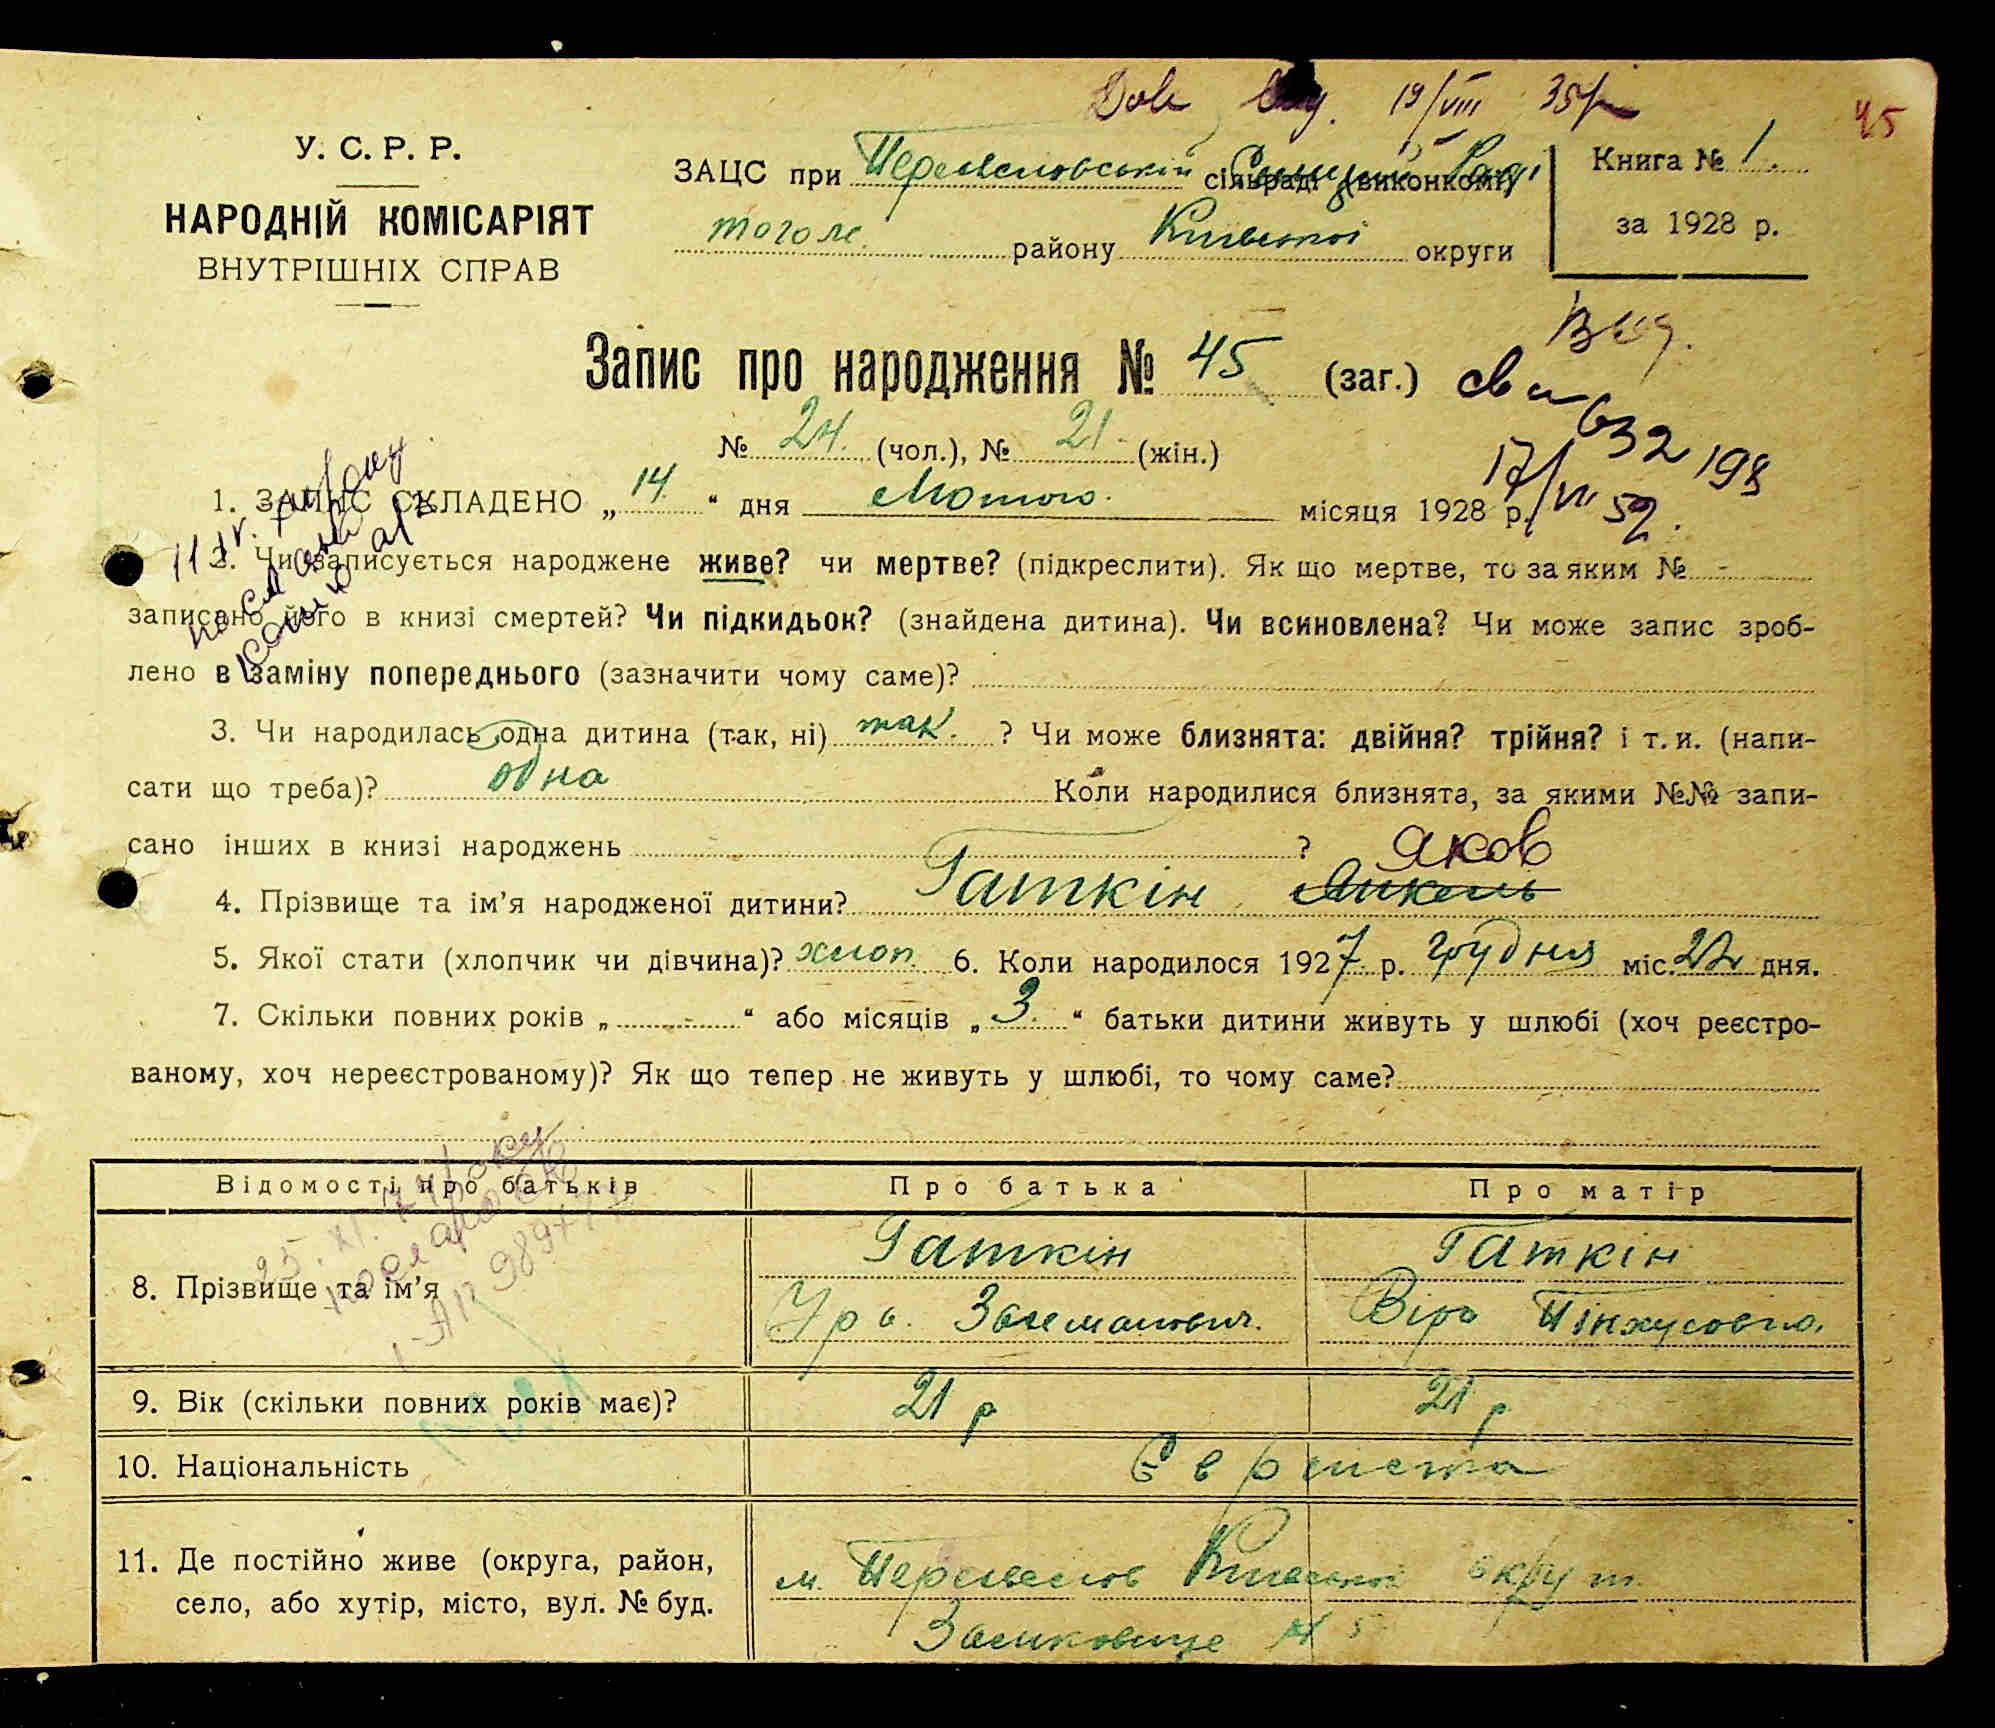 45
У. С. Р. Р.
НАРОДНІЙ КОМІСАРІЯТ
ВНУТРІШНІХ СПРАВ
19/VIII 35 р
ЗАЦС при сільраді (виконкомі)
району Київської округи
Книга № 1.
за 1928 р.
Запис про народження № 45 (заг.)
№ 24. (чол.), № 21. (жін.)
632 198
17/VII 52.
1. ЗАПИС СКЛАДЕНО „14.“ дня Лютого. місяця 1928 р.
2. Чи записується народжене живе? чи мертве? (підкреслити). Як що мертве, то за яким № -
записано його в книзі смертей? Чи підкидьок? (знайдена дитина). Чи всиновлена? Чи може запис зроб-
лено в заміну попереднього (зазначити чому саме)?
3. Чи народилась одна дитина (так, ні) так. ? Чи може близнята: двійня? трійня? і т. и. (напи-
сати що треба)? одна Коли народилися близнята, за якими №№ запи-
сано інших в книзі народжень ?
Яков
4. Прізвище та ім’я народженої дитини? Гаткін Янкель
5. Якої стати (хлопчик чи дівчина)? хлоп. 6. Коли народилося 1927 р. грудня міс. 22 дня.
7. Скільки повних років „ - “ або місяців „3.“ батьки дитини живуть у шлюбі (хоч реєстро-
ваному, хоч нереєстрованому)? Як що тепер не живуть у шлюбі, то чому саме?
Відомості про батьків Про батька Про матір
8. Прізвище та ім’я Гаткін Гаткін
Віра Пінхусовна.
9. Вік (скільки повних років має)? 21 р 21 р
10. Національність
11. Де постійно живе (округа, район,
село, або хутір, місто, вул. № буд.
м. Київської округ.
5